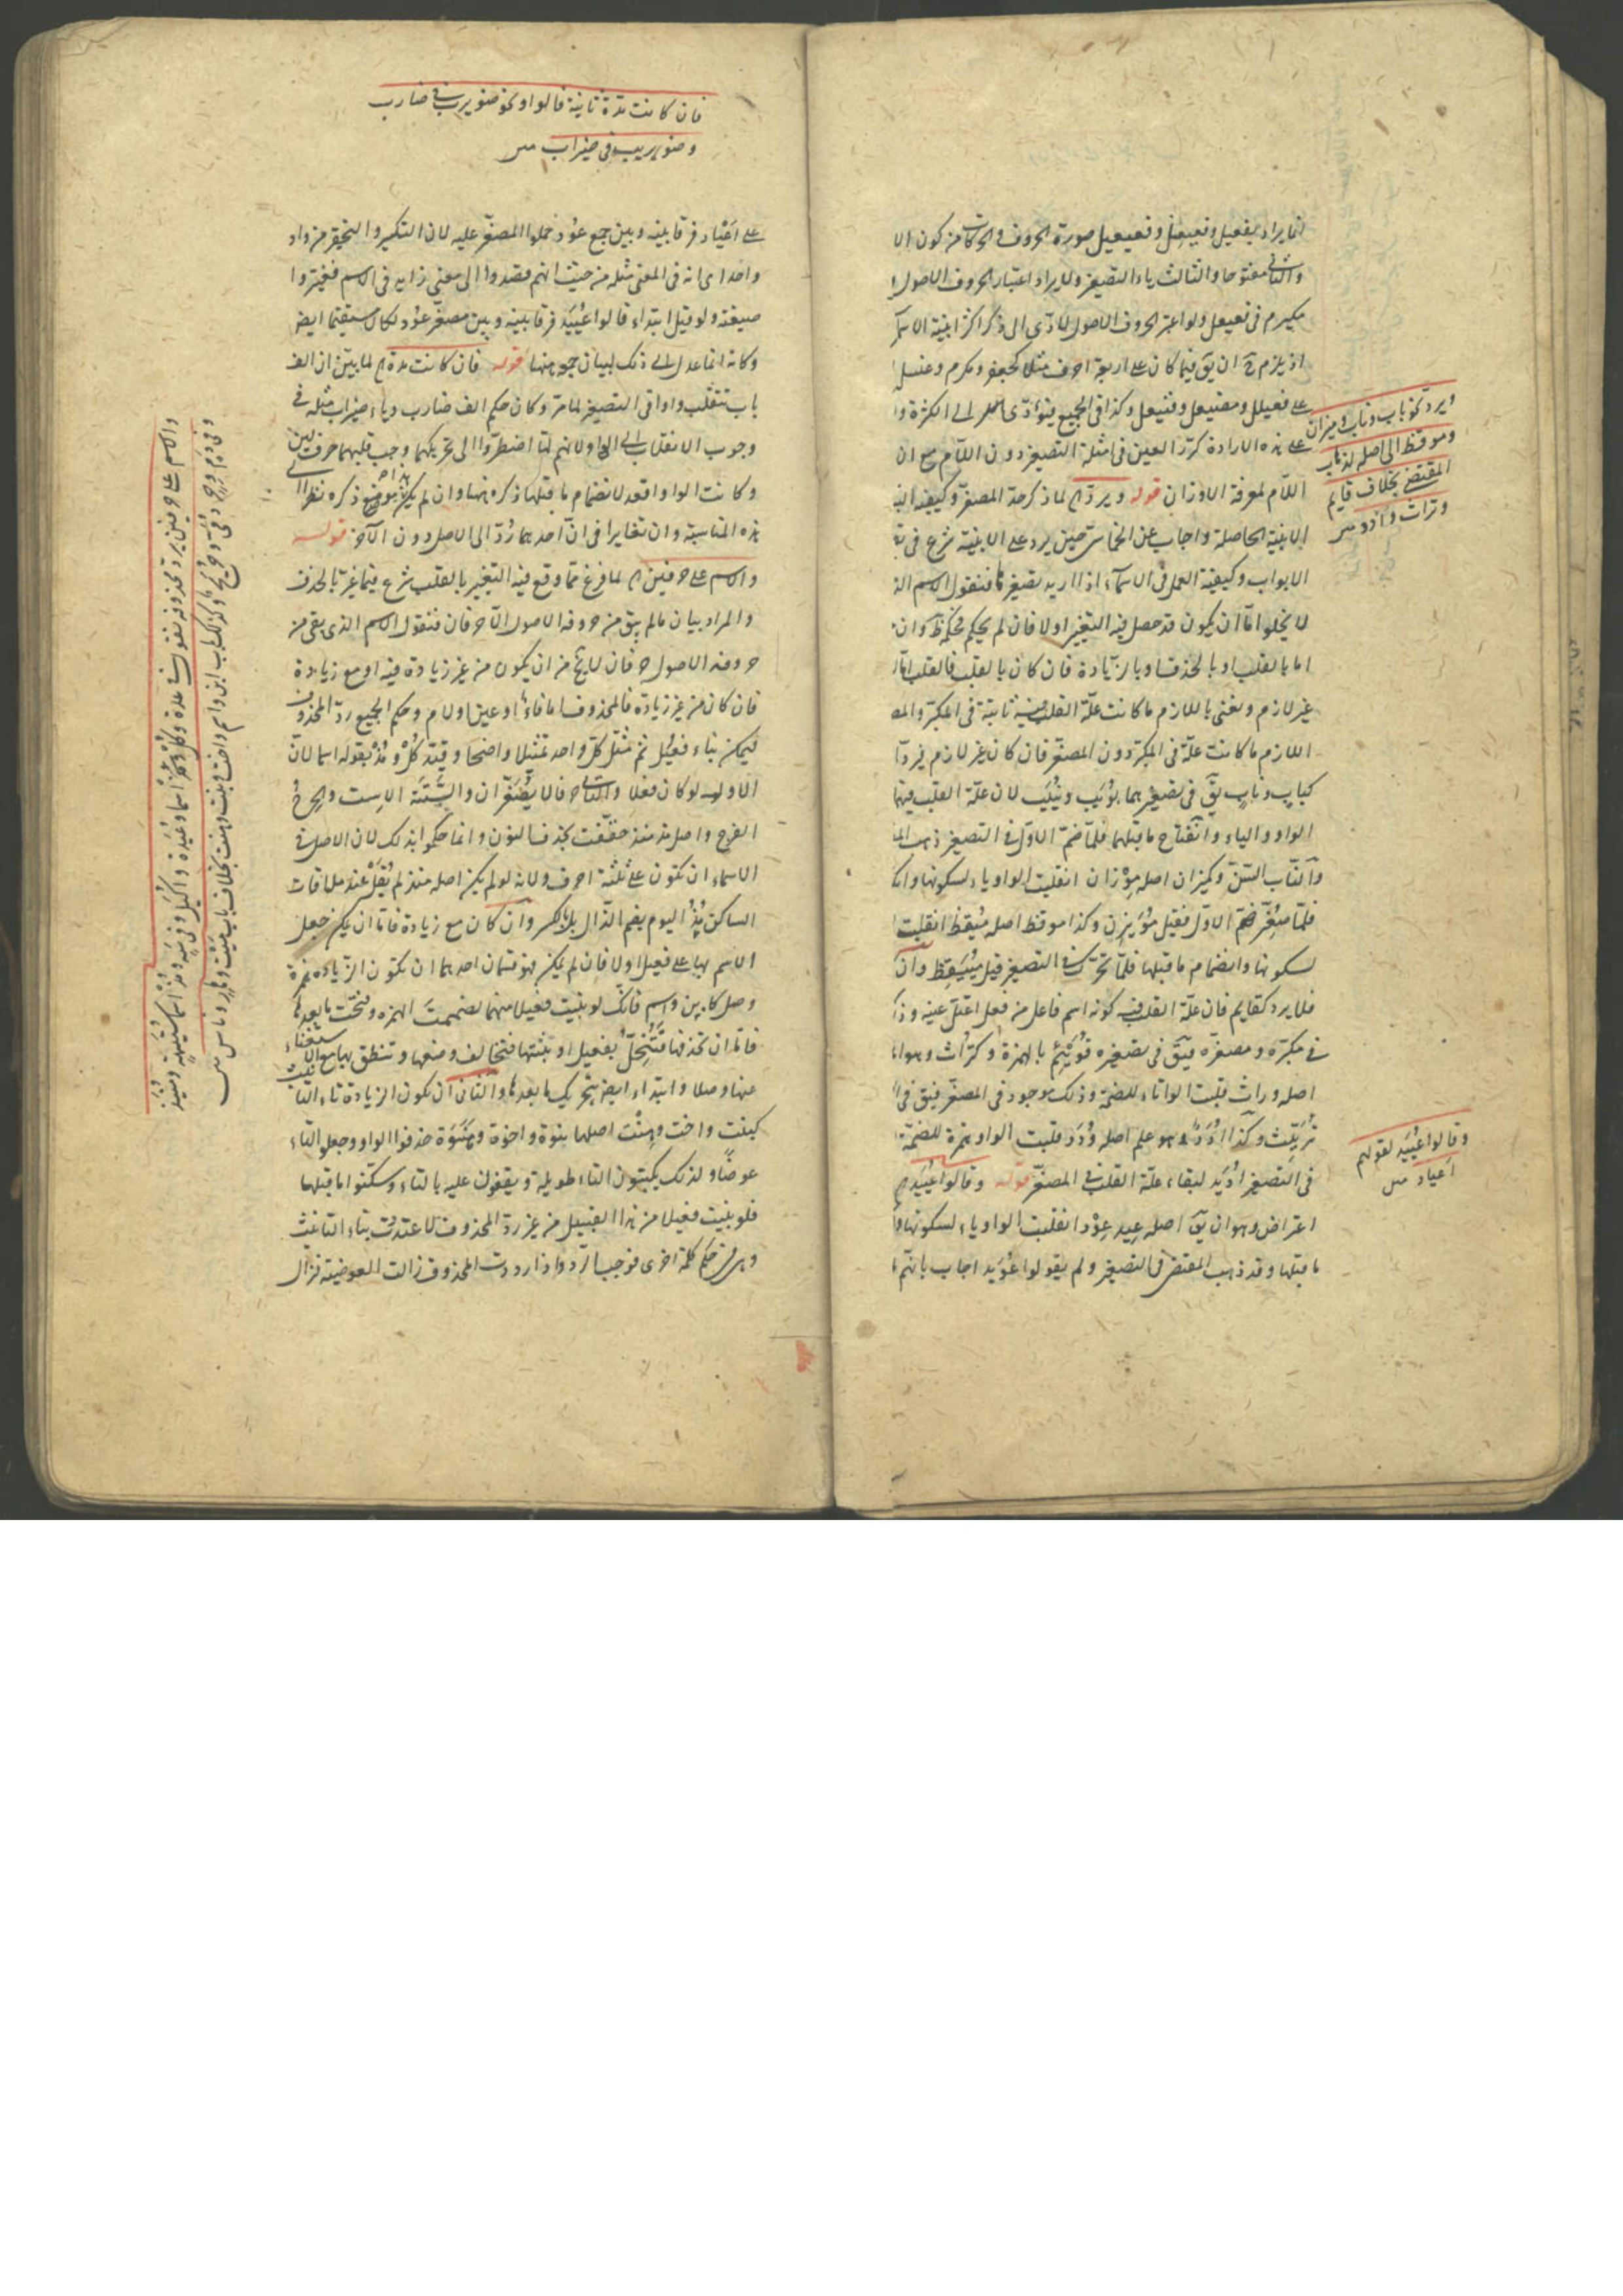 انما يراد بفعيل وفعيعل وفعيعيل صورة الحروف والحركات من كون الا
والثانى مفتوحا والثالث ياء التصغير ولا يراد اعتبار الحروف الاصول
مكيرم فى فعيعل ولو اعتبر الحروف الاصول لادى الى ذكر اكثر ابنية الاسم
اذ يلزم ح ان يق فيما كان على اربعة احرف مثلا كجعفر ومكرم
على فعيلل ومفيعل وفنيعل وكذا فى الجميع فيؤدى الى الكثرة وا
على هذه الارادة كرر العين فى امثلة التصغير دون اللام مع ان
اللام لمعرفة الاوزان قوله ويرد لما ذكر حد المصغر وكيفية
الابنية الحاصلة واجاب عن الخماسى حين يرد على الابنية شرع فى
الابواب وكيفية العمل فى الاسماء اذا اريد تصغيرها فنقول الاسم
لا يخلو اما ان يكون قد حصل فيه التغيير اولا فان لم يكن فحكمه وان
اما بالقلب او بالحذف او بالزيادة فان كان بالقلب فالقلب اما
غير لازم ونعنى باللازم ما كانت علة القلب فيه ثابتة فى المكبر والمص
اللازم ما كانت علة فى المكبر دون المصغر فان كان غير لازم يرد
كباب وناب يق فى تصغيرهما بويب ونييب لان علة القلب فيهما
الواو والياء وانفتاح ما قبلهما فلما ضم الاول فى التصغير ذهب
والناب السن وكميزان اصله موزان انقلبت الواو ياء لسكونها وانك
فلما صغر ضم الاول فقيل مويزن وكذا موقظ اصله ميقظ انقلبت
لسكونها وانضمام ما قبلها فلما تحرك فى التصغير قيل مييقظ وان
فلا يرد كقايم فان علة القلب فيه كونه اسم فاعل من فعل اعتل عينه
فى مكبره ومصغره فيق فى تصغيره قويئم بالهمزة وكتراث وهو
اصله وراث قلبت الواو تاء للضمة وذلك موجود فى المصغر فيق فى
تريث وكذا ادد وهو علم اصله ودد قلبت الواو همزة للضمة
فى التصغير اديد لبقاء علة القلب فى المصغر قوله وقالوا عييد
اعتراض وهو ان يق اصله عيد عود انقلبت الواو ياء لسكونها
ما قبلها وقد ذهب المقتضى فى التصغير ولم يقولوا عويد اجاب بانهم
ويرد نحو باب وناب وميزان
وموقظ الى اصله لذهاب
المقتضى بخلاف قايم
وتراث وادد
وقالوا عييد لقولهم
اعياد
فان كانت مدة ثانية فالواو نحو ضويرب فى ضارب
وضويريب فى ضيراب
على اعياد فرقا بينه وبين جمع عود حملوا المصغر عليه لان التكسير والتحقير من واد
واحد اى انه فى المعنى مثله من حيث انهم قصدوا الى معنى زايد فى الاسم فغيروا
صيغته ولو قيل ابتداء قالوا عييد فرقا بينه وبين مصغر عود لكان مستقيما ايض
وكانه انما عدل الى ذلك لبيان منها قوله فان كانت مدة لما بين ان الف
باب تنقلب واوا فى التصغير لما مر وكان حكم الف ضارب وياء ضيراب مثله فى
وجوب الانقلاب الى الواو لانهم لما اضطروا الى تحريكهما وجب قلبهما حرف لين
وكانت الواو اقعد لانضمام ما قبلها ذكره ههنا وان لم يكن هذا موضع ذكره نظرا الى
هذه المناسبة وان تغايرا فى ان احدهما رد الى الاصل دون الآخر قوله
والاسم على حرفين لما فرغ مما وقع فيه التغيير بالقلب شرع فيما غير بالحذف
والمراد بيان ما لم يبق من حروفه الاصول الا حرفان فنقول الاسم الذى بقى من
حروفه الاصول حرفان لا يخ من ان يكون من غير زيادة فيه او مع زيادة
فان كان من غير زيادة فالمحذوف اما فاء او عين او لام وحكم الجميع رد المحذوف
ليمكن بناء فعيل ثم مثل كل واحد تمثيلا واضحا وقيد كل ومذ بقوله اسما لان
الاول لو كان فعلا والثانى حرفا لا يصغران والستة الاست والحرح
الفرج واصل مذ منذ خففت بحذف النون وانما حكموا بذلك لان الاصل فى
الاسماء ان تكون على ثلثة احرف ولانه لو لم يكن اصله منذ لم يقل عند ملاقات
الساكن مذ اليوم بضم الذال بل بالكسر وان كان مع زيادة فاما ان يمكن جعل
الاسم بها على فعيل اولا فان لم يمكن فهو قسمان احدهما ان تكون الزيادة همزة
وصل كابن واسم فانك لو بنيت فعيلا منهما لضممت الهمزة وفتحت ما بعدها
فاما ان تحذفها فتخل بفعيل او تبقيها فتخالف وضعها وتنطق بها مع الاستغناء
عنها وصلا وابتداء ايض بتحريك ما بعدها والثانى ان تكون الزيادة تاء التأنيث
كبنت واخت وهنت اصلها بنوة واخوة وهنوة حذفوا الواو وجعلوا التاء
عوضا ولذلك يكتبون التاء طويلة ويقفون عليه بالتاء وسكنوا ما قبلها
فلو بنيت فعيلا من هذا القبيل من غير رد المحذوف لاعتددت بتاء التأنيث
وهى فى حكم كلمة اخرى فوجب الرد واذا رددت المحذوف زالت العوضية فزال
والاسم على حرفين يرد محذوفه تقول فى عدة وكل اسما وعيدة واكيل وفى سه ومذ اسما ستيهة ومنيذ
وفى دم وحر دمى وحريح وكذلك باب ابن واسم واخت وبنت وهنت بخلاف باب ميت وهار وناس